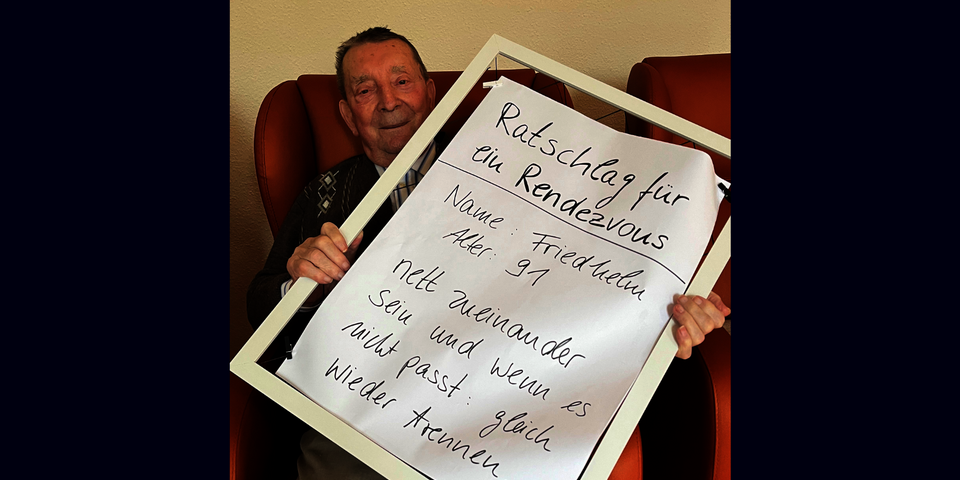 Ratschlag für
ein Rendezvous
Name: Friedhelm
Alter: 91
nett zueinander
sein und wenn es
nicht passt: gleich
wieder trennen